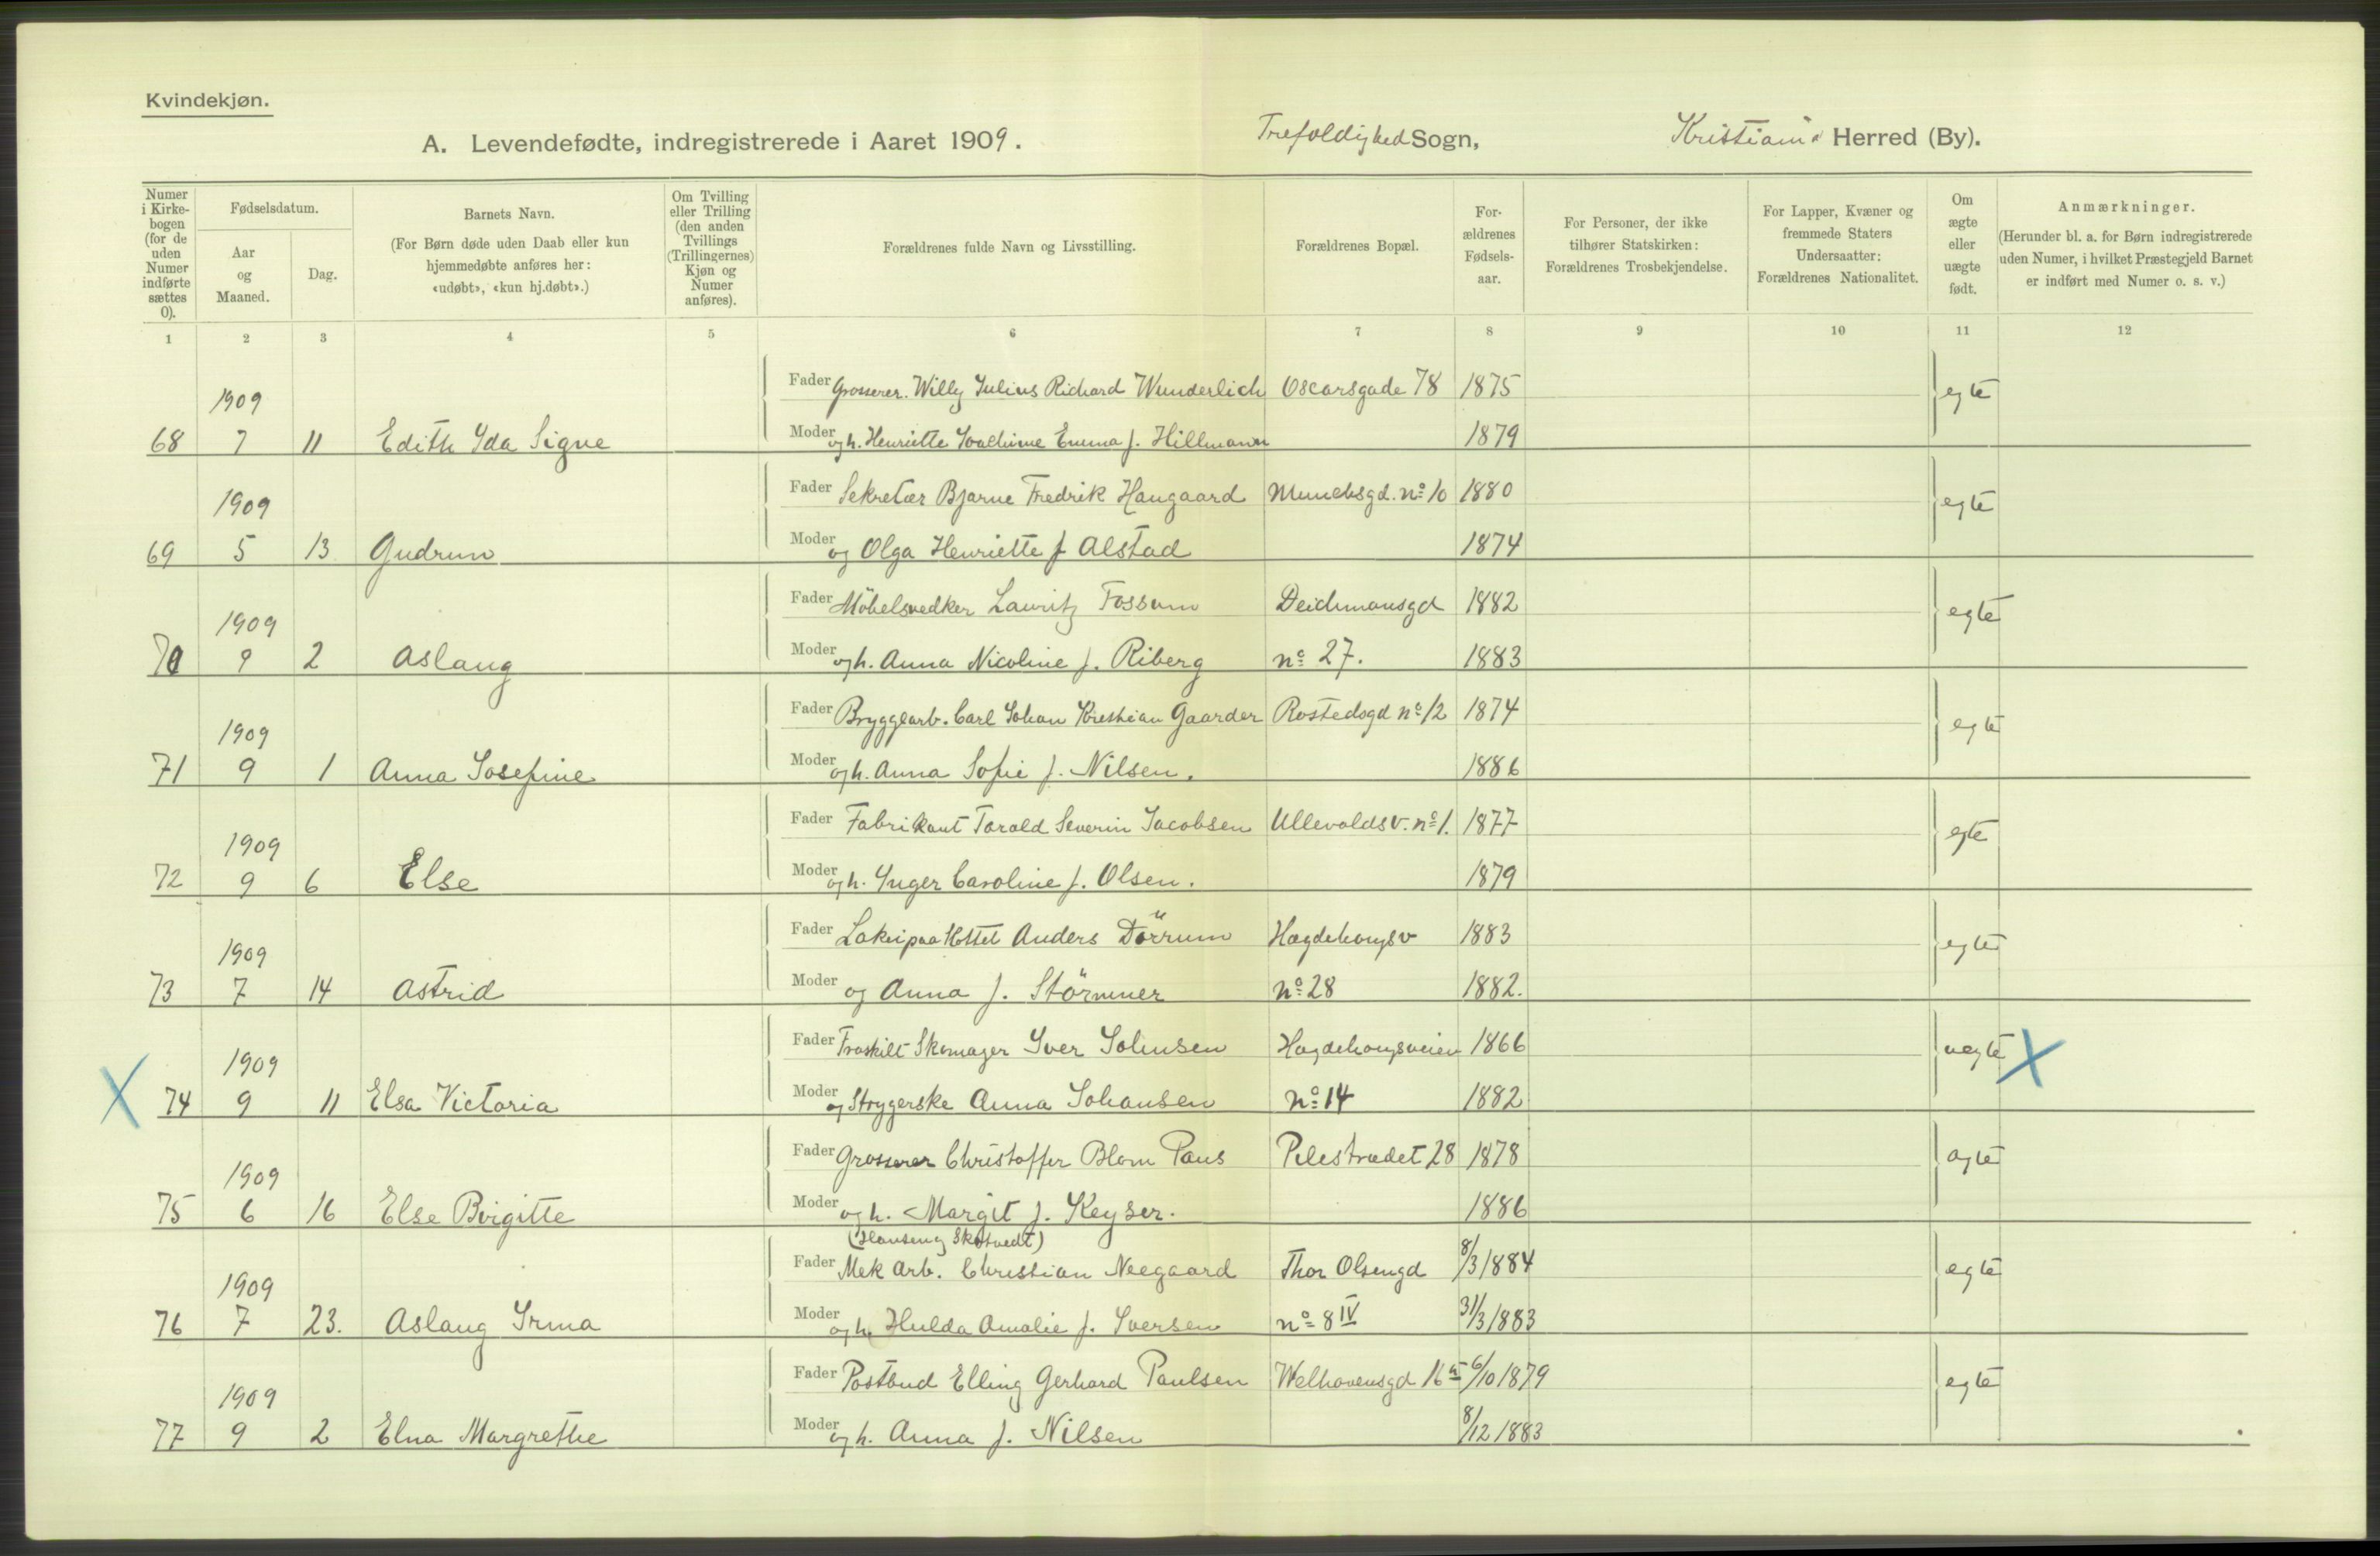 Kvindekjøn.
A. Levendefødte, indregistrerede i Aaret 1909. Trefoldighed Sogn, Kristiania Herred (By).
Numer i Kirke-bogen (for de uden Numer indførte sættes 0).
Fødselsdatum.
Aar og Maaned.
Dag.
Barnets Navn.
(For Børn døde uden Daab eller kun hjemmedøbte anføres her: «udøbt», «kun hj.døbt».)
Om Tvilling eller Trilling (den anden Tvillings (Trillingernes) Kjøn og Numer anføres).
Forældrenes fulde Navn og Livsstilling.
Forældrenes Bopæl.
For-ældrenes Fødsels-aar.
For Personer, der ikke tilhører Statskirken: Forældrenes Trosbekjendelse.
For Lapper, Kvæner og fremmede Staters Undersaatter: Forældrenes Nationalitet.
Om ægte eller uægte født.
Anmærkninger.
(Herunder bl. a. for Børn indregistrerede uden Numer, i hvilket Præstegjeld Barnet er indført med Numer o. s. v.)
1 2 3 4 5 6 7 8 9 10 11 12
1909 Fader Grosserer. Willy Julius Richard Wunderlich Oscarsgade 78 1875 egte
68 7 11 Edith Ida Signe Moder og h. Henriette Joachime Emma f. Hillmann 1879
1909 Fader Sekretær Bjarne Fredrik Haugaard Munchsgd. no 10 1880 egte
69 5 13 Gudrun Moder og Olga Henriette f Alstad 1874
1909 Fader Möbelsnedker Lauritz Fossum Deichmansgd 1882 egte
70 9 2 Aslaug Moder og h. Anna Nicoline f. Riberg no 27. 1883
1909 Fader Bryggearb. Carl Johan Kristian Gaarder Rostedsgd no 12 1874 egte
71 9 1 Anna Josefine Moder og h. Anna Sofie f. Nilsen. 1886
1909 Fader Fabrikant Torald Severin Jacobsen Ullevoldsv. no 1. 1877 egte
72 9 6 Else Moder og h. Inger Caroline f. Olsen. 1879
1909 Fader Lakei paa Hottel Anders Dörrum Hægdehougsv 1883 egte
73 7 14 Astrid Moder og Anna f. Störmmer no 28 1882.
1909 Fader Fraskilt Skomager Iver Johnsen Hægdehougsveien 1866 uegte
74 9 11 Elsa Victoria Moder og Strygerske Anna Johansen no 14 1882
1909 Fader Grosserer Christoffer Blom Paus Pilestrædet 28 1878 ægte
75 6 16 Else Birgitte Moder og h. Margit f. Keyser. 1886
1909 Fader Mek Arb. Christian Neegaard Thor Olsengd 8/3 1884 egte
76 7 23. Aslaug Irma Moder og h. Hulda Amalie f. Iversen no 8 IV 31/3 1883
1909 Fader Postbud Elling Gerhard Paulsen Welhavensgd 16 6/10 1879 egte
77 9 2 Elna Margrethe Moder og h. Anna f. Nilsen 8/12 1883